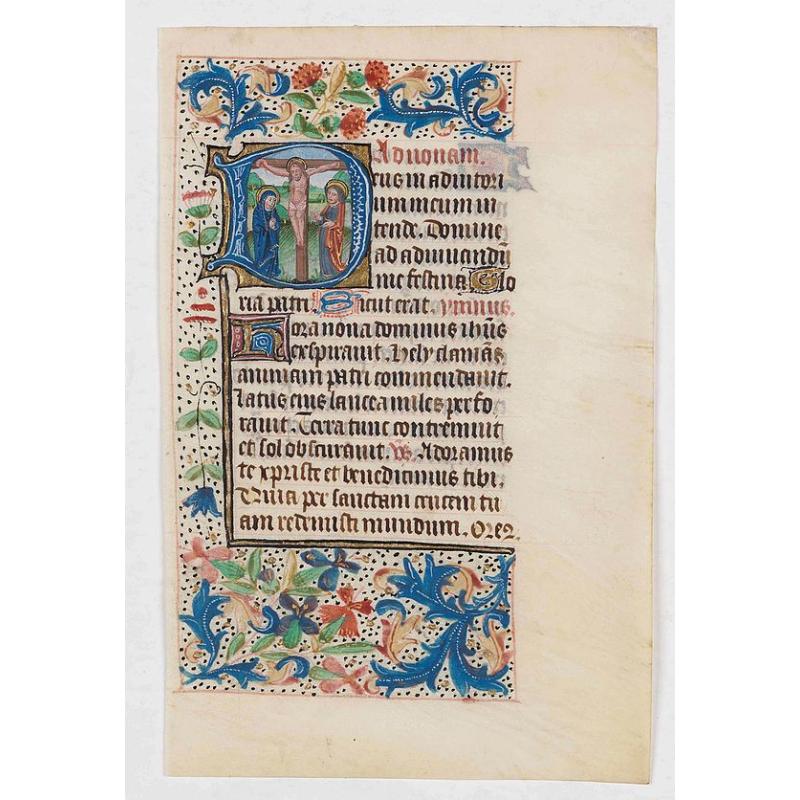 Ad nonam.
Deus in adiutori
um meum in
tende. Domine
ad adiuuandū
me festina Glo
ria patri Sicut erat. ymnus.
Hora nona dominus ihūs
exspirauit. hely clamās
animam patri commendauit.
Latus eius lancea miles perfo
rauit. Terra tunc contremuit
et sol obscurauit. Vs Adoramus
te xpriste et benedicimus tibi.
Quia per sanctam crucem tu
am redemisti mundum. Ore2.